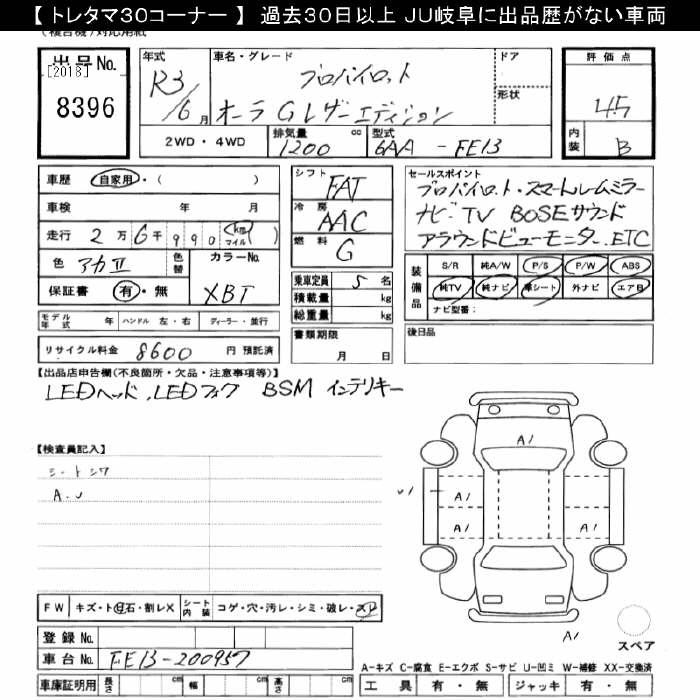 【 トレタマ30コーナー 】 過去30日以上 JU岐阜に出品歴がない車両
出品No.
[2018]
8396
年式
R3/6月
車名・グレード
プロパイロット
オーラ G レザーエディション
ドア
形状
評価点
4.5
内装
B
2WD・4WD
排気量 cc
1200
型式
6AA - FE13
車歴 自家用・( )
車検 年 月
走行 2万6千990 (km マイル)
色 アカII 色替
カラーNo.
XBT
保証書 有・無
シフト FAT
冷房 AAC
燃料 G
乗車定員 5 名
積載量 kg
総重量 kg
セールスポイント
プロパイロット・スマートルームミラー
ナビ・TV BOSEサウンド
アラウンドビューモニター、ETC
装備品
S/R 純A/W P/S P/W ABS
純TV 純ナビ 革シート 外ナビ エアB
ナビ型番:
モデル年式 年 ハンドル 左・右 ディーラー・並行
書類期限
月 日
後日品
リサイクル料金 8600 円 預託済
【出品店申告欄(不良箇所・欠品・注意事項等)】
LEDヘッド、LEDフォグ BSM インテリキー
【検査員記入】
シートシワ
A.U
A1
U1
A1
A1
A1
A1
A1
FW キズ・ト飛石・割レX シート内装 コゲ・穴・汚レ・シミ・破レ・スレ
スペア
登録No.
車台No. FE13-200957
A-キズ C-腐食 E-エクボ S-サビ U-凹ミ W-補修 XX-交換済
車庫証明用 長さ cm 幅 cm 高さ cm
工具 有・無 ジャッキ 有・無